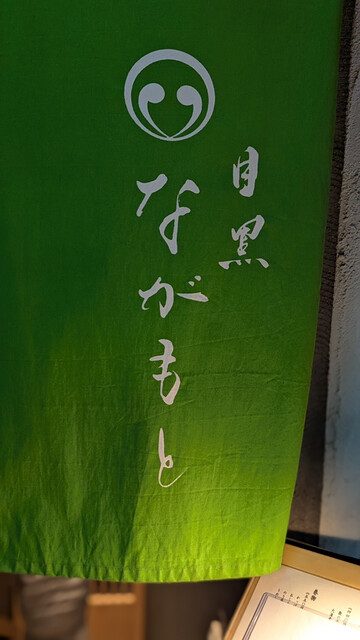 目黒
ながもと